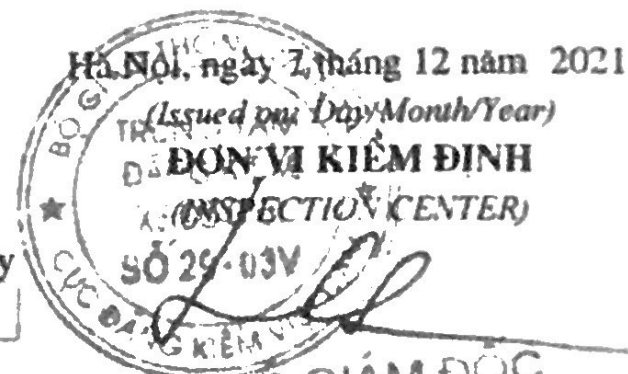 Hà Nội, ngày 7 tháng 12 năm 2021
(Issued on: Day/Month/Year)
ĐƠN VỊ KIỂM ĐỊNH
(INSPECTION CENTER)
SỐ 29-03V
CỤC ĐĂNG KIỂM
GIÁM ĐỐC